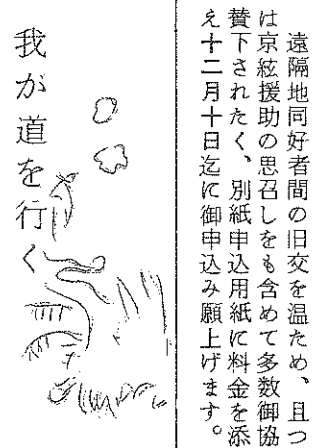 遠隔地同好者間の旧交を温ため、且つ
は京絃援助の思召しをも含めて多数御協
賛下されたく、別紙申込用紙に料金を添
え十二月十日迄に御申込み願上げます。
我が道を行く